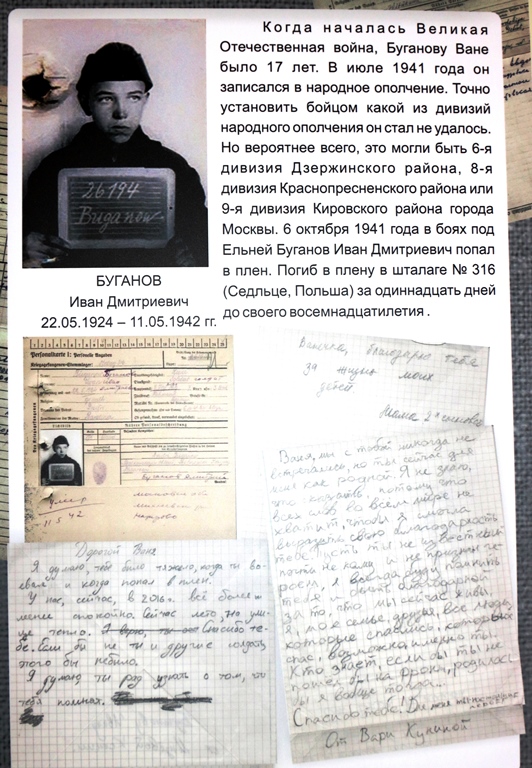 Когда началась Великая
Отечественная война, Буганову Ване
было 17 лет. В июле 1941 года он
записался в народное ополчение. Точно
установить бойцом какой из дивизий
народного ополчения он стал не удалось.
Но вероятнее всего, это могли быть 6-я
дивизия Дзержинского района, 8-я
дивизия Краснопресненского района или
9-я дивизия Кировского района города
Москвы. 6 октября 1941 года в боях под
Ельней Буганов Иван Дмитриевич попал
в плен. Погиб в плену в шталаге № 316
(Седльце, Польша) за одиннадцать дней
до своего восемнадцатилетия .
26194
Buganow
БУГАНОВ
Иван Дмитриевич
22.05.1924 – 11.05.1942 гг.
Personalkarte I: Personelle Angaben
Kriegsgefangenen-Stammlager:
11.5.42
Ванечка, благодарю тебя
за жизнь моих
детей
Мама 2х сыновей
Ваня, мы с тобой никогда не
встречались, но ты сейчас для
меня как родной. Я не знаю,
что сказать, потому что
всех слов во всем мире не
хватит, чтобы я смогла
выразить свою благодарность
тебе. Пусть ты не известный
почти не кому и не признан ге-
роем, я всегда буду помнить
тебя и быть благодарной
за то, что мы сейчас живы.
Я, моя семья, друзья, все люди,
которые спаслись, которых
спас, возможно, именно ты.
Кто знает, если бы ты не
пошел бы на фронт, родилась
бы я вообще тогда...
Спасибо тебе! Для меня ты настоящий
герой
От Вари Куниной
Дорогой Ваня
Я думаю, тебе было тяжело, когда ты во-
евал и когда попал в плен.
У нас, сейчас, в 2016г. всё более и
менее спокойно. Сейчас лето, на ули-
це тепло. Спасибо те-
бе. Если бы не ты и другие солдаты,
этого бы небыло.
Я думаю ты рад узнать о том, что
тебя помнят.